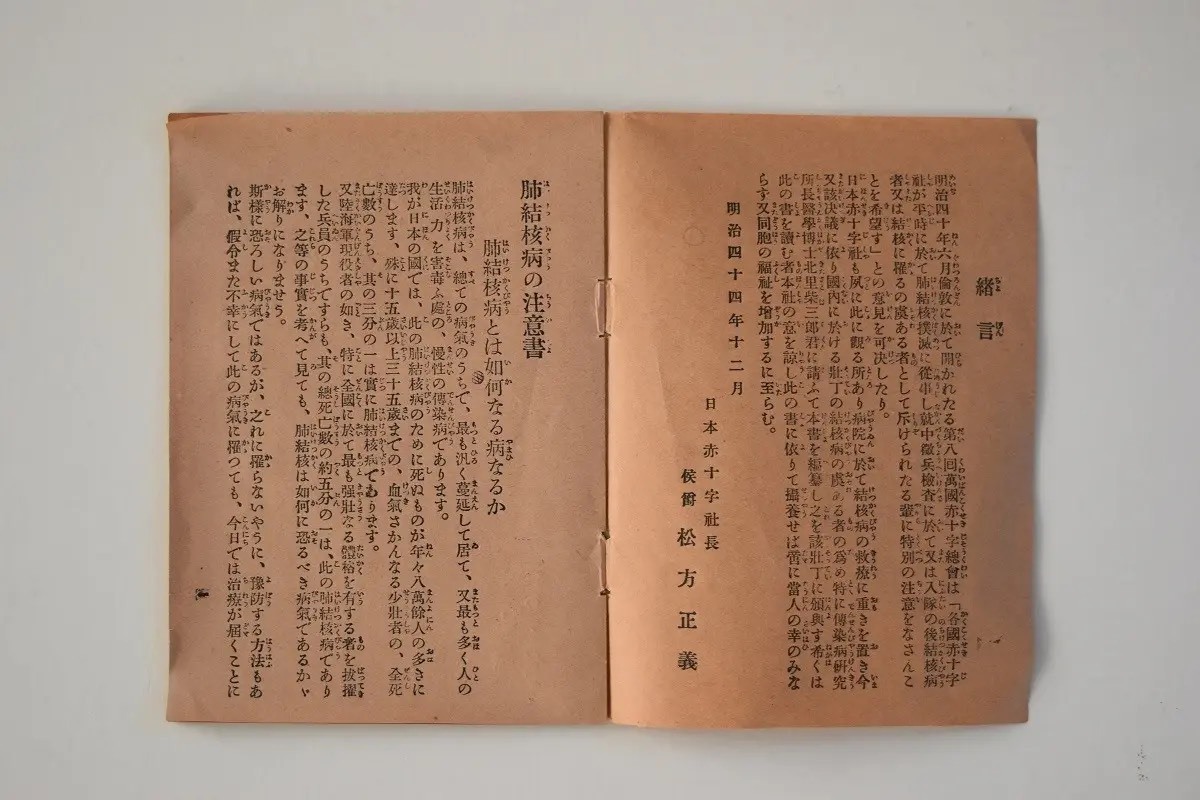 緒言
明治四十年六月倫敦に於て開かれたる第八回萬國赤十字總會は「各國赤十字
社が平時に於て肺結核撲滅に從事し就中徵兵檢査に於て又は入隊の後結核病
者又は結核に罹るの虞ある者として斥けられたる輩に特別の注意をなさんこ
とを希望す」との意見を可決したり。
日本赤十字社も夙に此に觀る所あり病院に於て結核病の救療に重きを置き今
又該决議に依り國內に於ける壯丁の結核病の虞ある者の爲め特に傳染病硏究
所長醫學博士北里柴三郎君に請ふて本書を編纂し之を該壯丁に頒與す希くは
此の書を讀む者本社の意を諒し此の書に依りて攝養せば啻に當人の幸のみな
らず又同胞の福祉を增加するに至らむ。
明治四十四年十二月
日本赤十字社長
侯爵 松方正義
肺結核病の注意書
肺結核病とは如何なる病なるか
肺結核病は、總ての病氣のうちで、最も汎く蔓延して居て、又最も多く人の
生活力を害毒ふ處の、慢性の傳染病であります。
我が日本の國では、此の肺結核病のために死ぬものが年々八萬餘人の多きに
達します。殊に十五歲以上三十五歲までの、血氣さかんなる少壯者の、全死
亡數のうち、其の三分の一は實に肺結核病であります。
又陸海軍現役者の如き、特に全國に於て最も强壯なる體格を有する者を拔擢
した兵員のうちですらも、其の總死亡數の約五分の一は、此の肺結核病であり
ます、之等の事實を考へて見ても、肺結核は如何に恐るべき病氣であるかゞ
お解りになりませう。
斯樣に恐ろしい病氣ではあるが、之れに罹らないやうに、豫防する方法もあ
れば、假令また不幸にして此の病氣に罹つても、今日では治療が届くことに